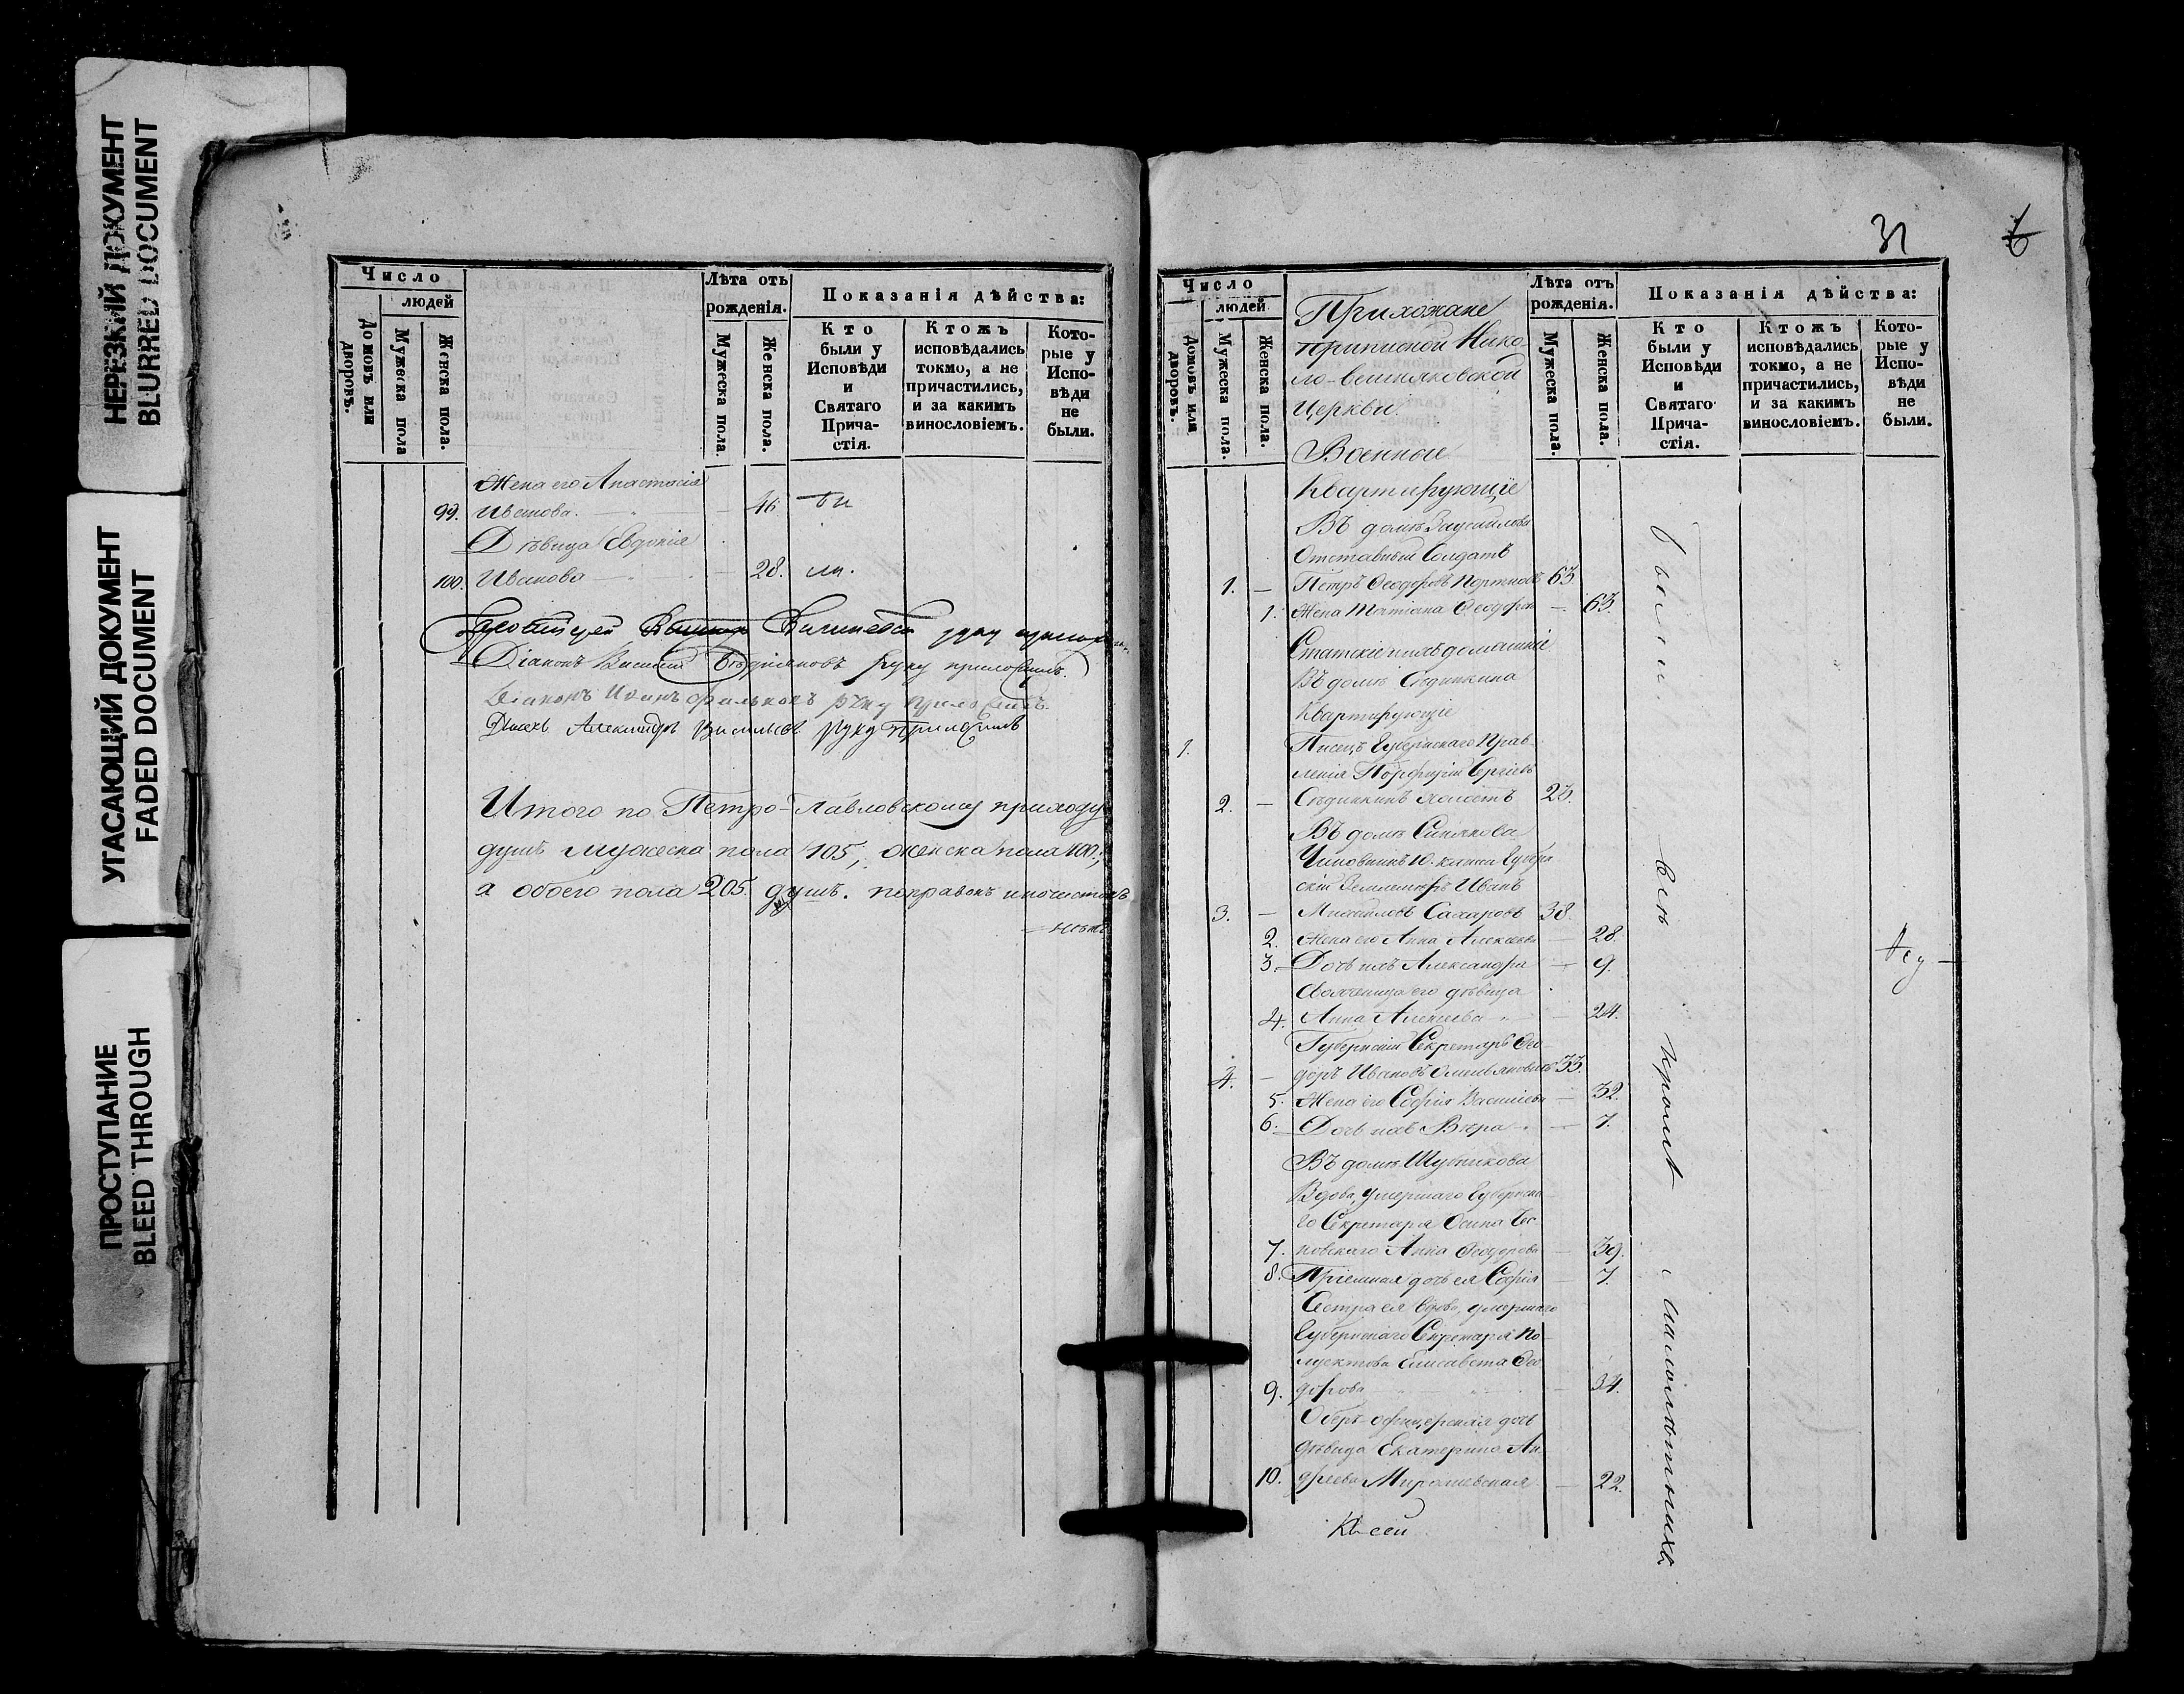 НЕРЕЗКИЙ ДОКУМЕНТ
BLURRED DOCUMENT
УГАСАЮЩИЙ ДОКУМЕНТ
FADED DOCUMENT
ПРОСТУПАНИЕ
BLEED THROUGH
Число
людей
Домовъ или дворовъ.
Мужеска пола
Женска пола.
Лѣта отъ рожденія.
Мужеска пола.
Женска пола.
Показанія дѣйства:
Кто были у Исповѣди и Святаго Прича-стія.
Ктожъ исповѣдались токмо, а не причастились, и за какимъ винословіемъ.
Кото-рые у Испо-вѣди не были.
Жена его Анастасія
99. Иванова. — 46
Дѣвица Евдокія
100. Иванова — 28.
Протоіерей руку
Діаконъ Василій руку приложилъ.
Діаконъ Иоаннъ руку приложилъ.
Александръ руку приложилъ
Итого по Петро-Павловскому приходу
душъ мужеска пола 105, женска пола 100.;
а обоего пола 205. душъ. поправокъ и почистокъ
нѣтъ
31 6
Число
людей
Домовъ или дворовъ.
Мужеска пола.
Женска пола.
Лѣта отъ рожденія.
Мужеска пола.
Женска пола.
Показанія дѣйства:
Кто были у Исповѣди и Святаго Прича-стія.
Ктожъ исповѣдались токмо, а не причастились, и за какимъ винословіемъ.
Кото-рые у Испо-вѣди не были.
Прихожане
приписной Нико-
ло-
Церкви.
Военные
Квартирующіе
Въ домѣ
Отставный Солдатъ
1. — Петръ Ѳеодоровъ 63
1. Жена Татіана Ѳеодоров — 63.
Статскіе и ихъ домашніе
Въ домѣ Сѣдинкина
Квартирующіе
1. Писецъ Губернскаго Прав-
ленія Порфирій Сергіевъ
2. — Сѣдинкинъ холостъ 23.
Въ домѣ Синякова
Чиновникъ 10. класса Губерн
скій Землемѣръ Иванъ
3. — Михайловъ Сахаровъ 38.
2. Жена его Анна Алексеева — 28.
3. Дочь ихъ Александра — 9.
Свояченица его дѣвица
4. Анна Алексеева — 24.
Губернскій Секретарь Ѳео
4. — доръ Ивановъ Омельяновичъ 33.
5. Жена его Софія Васильева — 32.
6. Дочь ихъ Вѣра — 7.
Въ домѣ Шубникова
Вдова, умершаго Губернска
го Секретаря Осипа
7. новскаго Анна Ѳеодорова — 39.
8. Пріемная дочь ея Софія — 7.
Сестра ея вдова, умершаго
Губернскаго Секретаря По
луектова Елисавета Ѳео
9. дорова — 34.
Оберъ-офицерская дочь
дѣвица Екатерина Ан
10. дреева Мирошевская — 22.
были. всѣ кромѣ